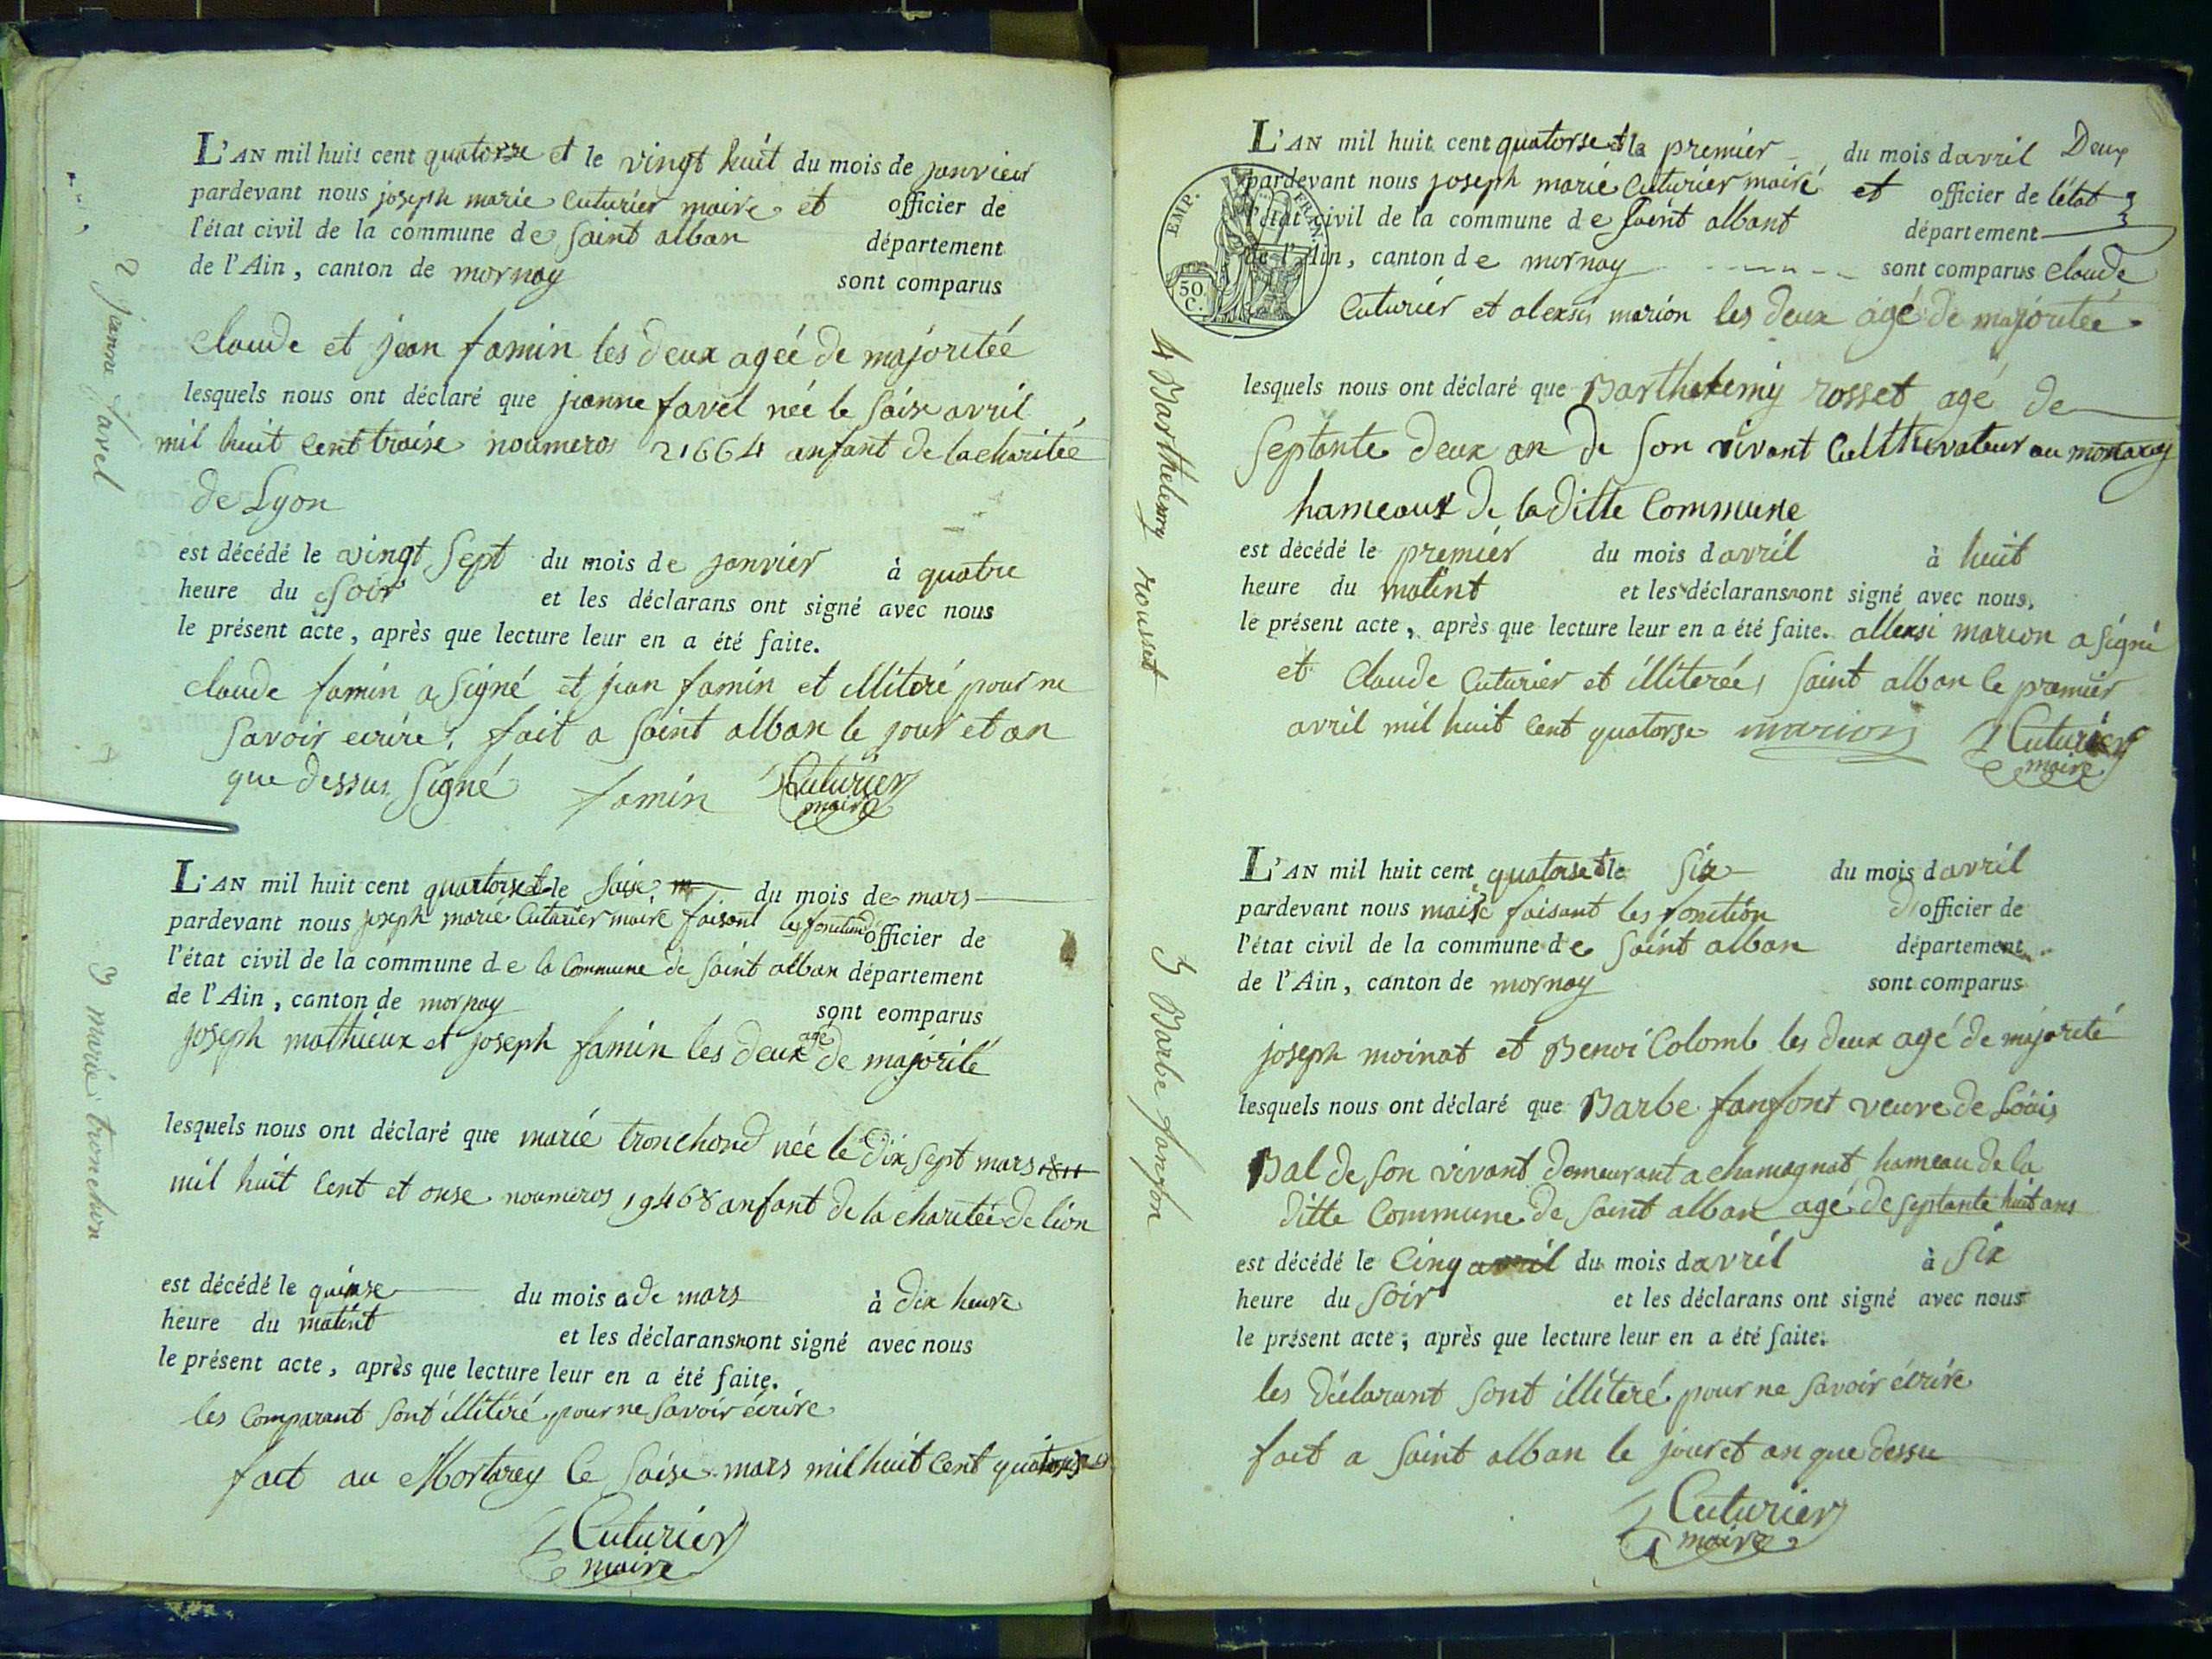 2 jeanne favel
L'AN mil huit cent quatorze et le vingt huit du mois de janvier
pardevant nous joseph marie Cuturier maire et officier de
l'état civil de la commune de Saint alban département
de l'Ain, canton de mornay sont comparus
claude et jean famin les deux ageé de majoritée
lesquels nous ont déclaré que jeanne favel née le saise avril
mil huit cent traise noumeros 21664 anfant de la charitée
de Lyon
est décédé le vingt sept du mois de janvier à quatre
heure du soir et les déclarans ont signé avec nous
le présent acte, après que lecture leur en a été faite.
claude famin a signé et jean famin et illiteré pour ne
savoir ecrire, fait a saint alban le jour et an
que dessus signé famin Cuturier
maire
3 marie tronchon
L'AN mil huit cent quatorse et le saise du mois de mars
pardevant nous joseph marie Cuturier maire faisant les fonction d officier de
l'état civil de la commune de la Commune de saint alban département
de l'Ain, canton de mornay sont comparus
joseph mathieux et joseph famin les deux agé de majorité
lesquels nous ont déclaré que marie tronchond née le dix sept mars 1811
mil huit cent et onse noumeros 19468 anfant de la charitée de lion
est décédé le quinse du mois a de mars à dix heure
heure du matint et les déclarans nont signé avec nous
le présent acte, après que lecture leur en a été faite.
les Comparant sont illitéré pour ne savoir écrire
fait au Mortarey le saise mars mil huit cent quatorse
Cuturier
maire
Deux
EMP. FRAN.
50 C.
4 Barthelemy rousset
L'AN mil huit cent quatorse et la premier du mois d avril
pardevant nous joseph marie Cuturier mairé et officier de l'état
l'état civil de la commune de saint albant département
de l'Ain, canton de mornay sont comparus claude
Cuturier et alexsis marion les deux agé de majoritée
lesquels nous ont déclaré que Barthelemy rosset agé de
septante deux an de son vivant Culthivateur au
hameaux de la ditte Commune
est décédé le premier du mois d avril à huit
heure du matint et les déclarans ont signé avec nous,
le présent acte, après que lecture leur en a été faite. allexsi marion a signé
et Claude Cuturier et illiterées saint alban le premier
avril mil huit cent quatorse marion Cuturier
maire
5 Barbe fanfon
L'AN mil huit cent quatorse et le six du mois d avril
pardevant nous maire faisant les fonction D officier de
l'état civil de la commune de saint alban département
de l'Ain, canton de mornay sont comparus
joseph moinat et Benoi Colomb les deux agé de majorité
lesquels nous ont déclaré que Barbe fanfont veuve de Louis
Bal de son vivant demeurant a chamagnat hameau de la
ditte Commune de saint alban agé de septante huit ans
est décédé le cinq avril du mois d avril à six
heure du soir et les déclarans ont signé avec nous
le présent acte, après que lecture leur en a été faite.
les déclarant sont illiteré pour ne savoir écrire
fait a saint alban le jour et an que dessu
Cuturier
maire